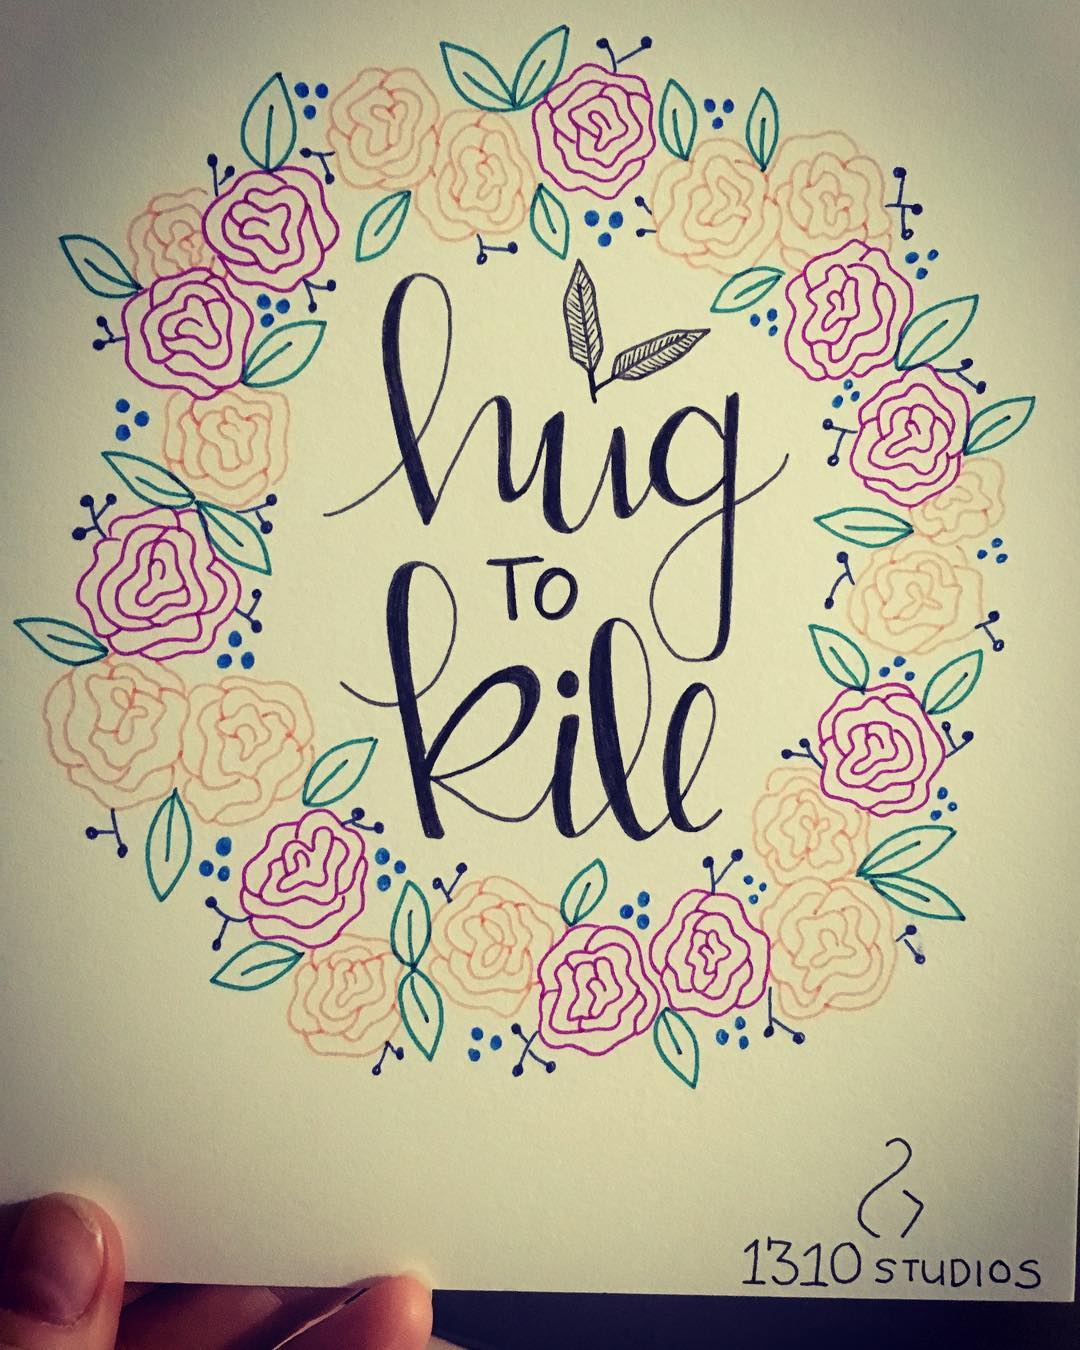 hug
TO
kill
1310 STUDIOS